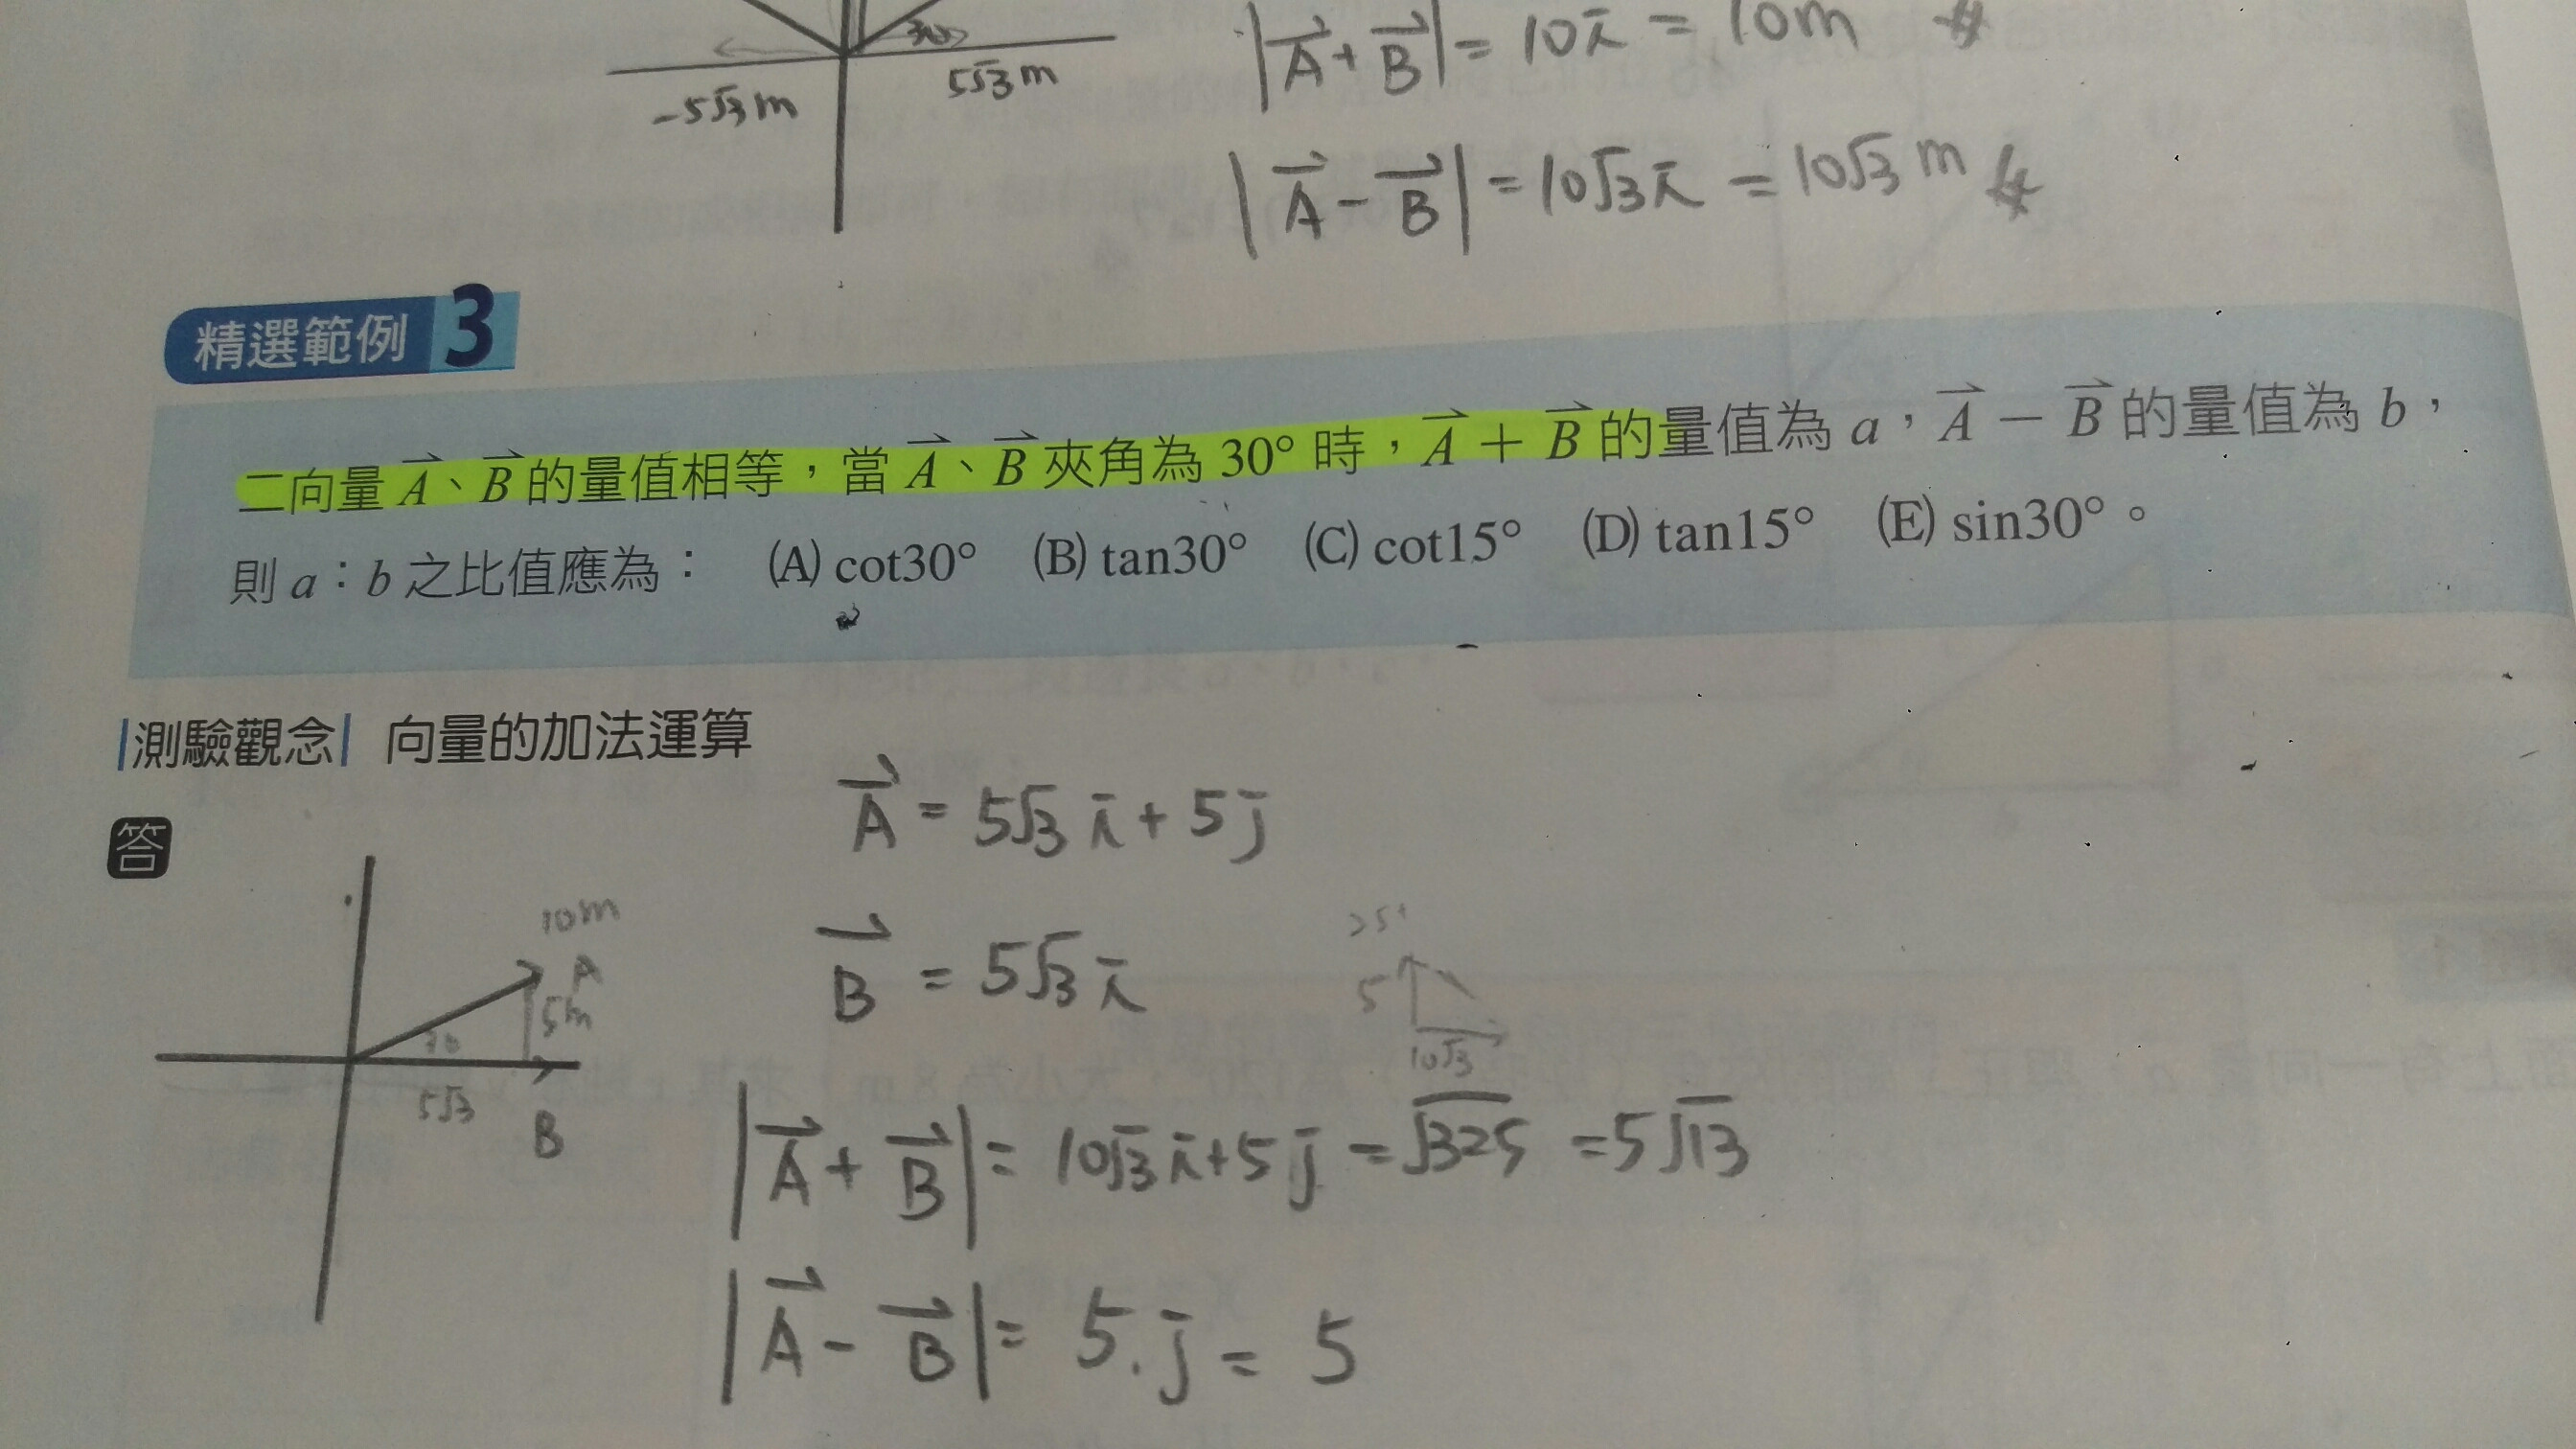 30
5√3 m
-5√3 m
|A⃗ + B⃗| = 10i = 10m
|A⃗ - B⃗| = 10√3 i = 10√3 m
精選範例 3
二向量 A⃗、B⃗ 的量值相等，當 A⃗、B⃗ 夾角為 30° 時，A⃗ + B⃗ 的量值為 a，A⃗ - B⃗ 的量值為 b，
則 a：b 之比值應為： (A) cot30° (B) tan30° (C) cot15° (D) tan15° (E) sin30°。
測驗觀念 向量的加法運算
答
A⃗ = 5√3 i + 5 j
10m
A
5m
30
5√3
B
B⃗ = 5√3 i
5
10√3
|A⃗ + B⃗| = 10√3 i + 5 j = √325 = 5√13
|A⃗ - B⃗| = 5. j = 5